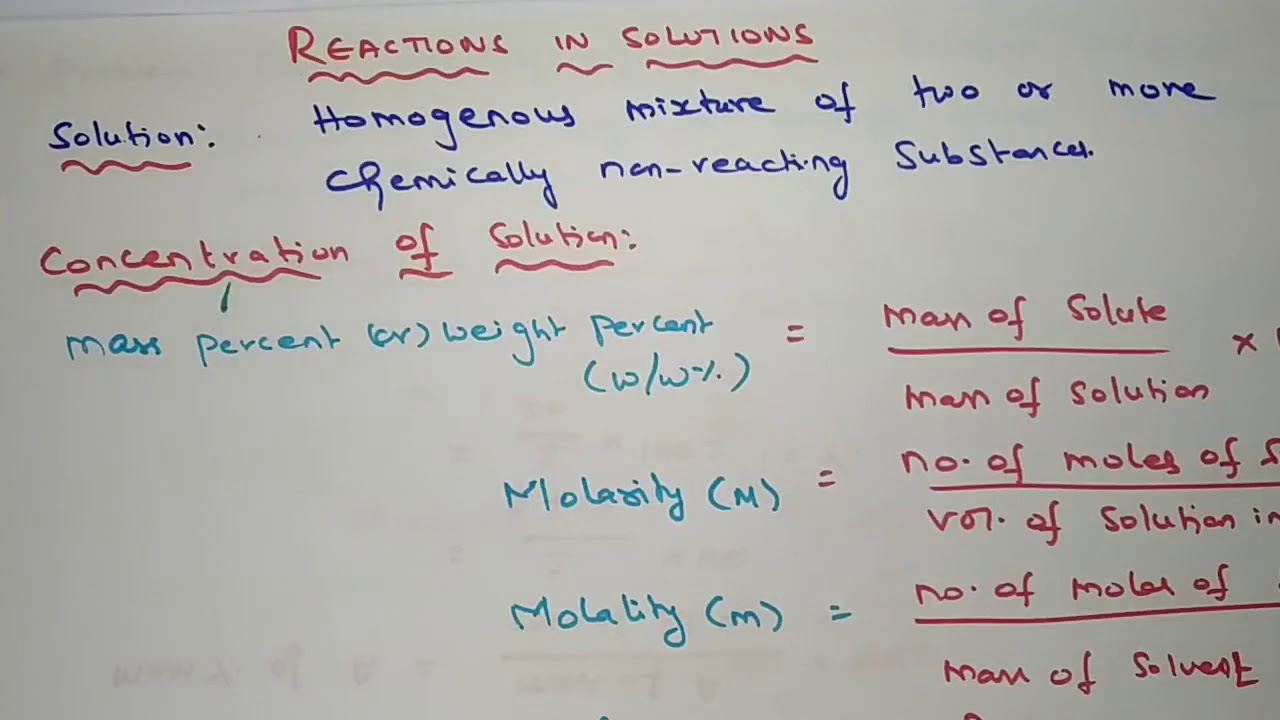 REACTIONS IN SOLUTIONS
Solution: Homogenous mixture of two or more
chemically non-reacting substances.
Concentration of Solution:
mass percent (or) weight percent = mass of Solute ×
(w/w%) mass of Solution
Molarity (M) = no. of moles of
vol. of Solution in
Molality (m) = no. of moles of
mass of Solvent